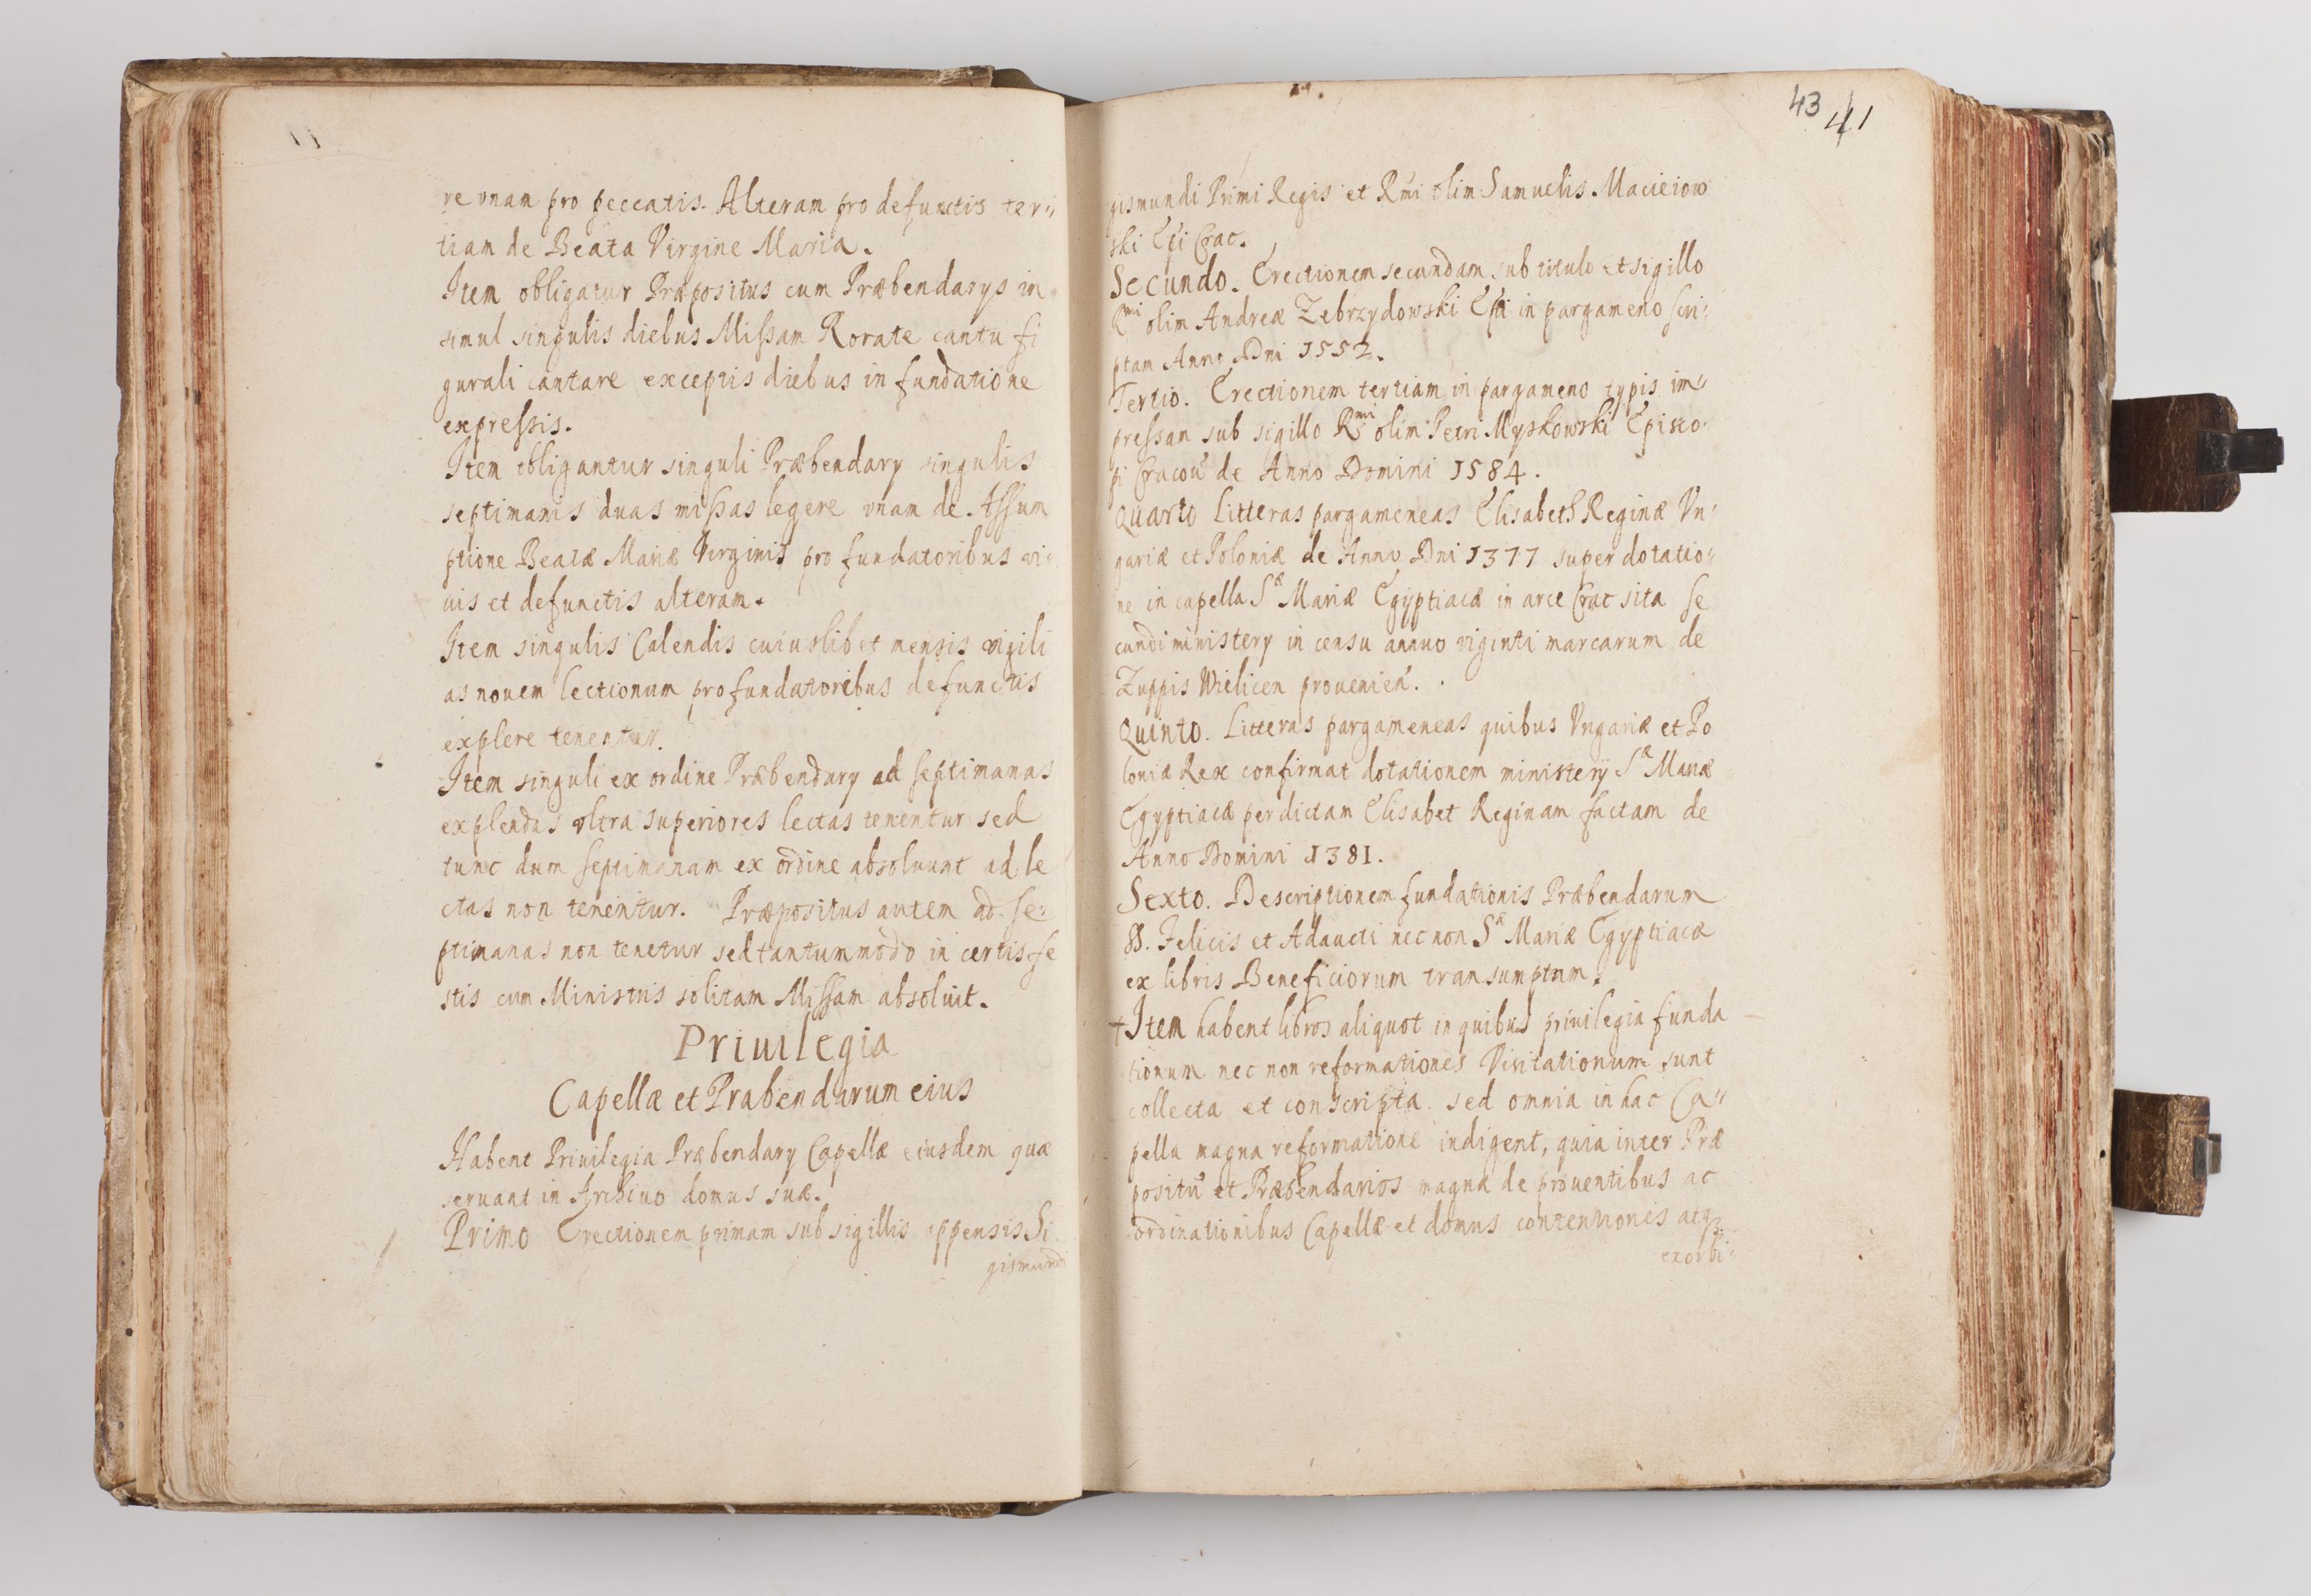 re vnam pro peccatis. Alteram pro defunctis ter„
tiam de Beata Virgine Maria.
Item obligatur Præpositus cum Præbendarys in
simul singulis diebus Missam Rorate cantu fi
gurali cantare exceptis diebus in fundatione
expressis.
Item obligantur singuli Præbendary singulis
septimanis duas missas legere vnam de Assum
ptione Beatæ Mariæ Virginis pro fundatoribus vi„
uis et defunctis alteram.
Item singulis Calendis cuiuslibet mensis vigili
as nouem lectionum pro fundatoribus defunctis
explere tenentur.
Item singuli ex ordine Præbendary ad septimanas
explendas vltra superiores lectas tenentur sed
tunc dum septimanam ex ordine absoluunt ad le
ctas non tenentur. Præpositus autem ad se„
ptimanas non tenetur sed tantummodo in certis fe
stis cum Ministris solitam Missam absoluit.
Priuilegia
Capellæ et Præbendarum eius
Habent Priuilegia Præbendary Capellæ eiusdem quæ
seruant in Archiuo domus suæ.
Primo Erectionem primam sub sigillis appensis Si
gismundi
43 41
gismundi Primi Regis et Rmi olim Samuelis Macieiow
ski Epi Crac.
Secundo. Erectionem secundam sub titulo et sigillo
Rmi olim Andreæ Zebrzydowski Epi in pargameno scri„
ptam Anno Dni 1552.
Tertio. Erectionem tertiam in pargameno typis im„
pressam sub sigillo Rmi olim Petri Myskowski Episco„
pi Cracou de Anno Domini 1584.
Quarto Litteras pargameneas Elisabeth Reginæ Vn„
gariæ et Poloniæ de Anno Dni 1377 super dotatio„
ne in capella Sæ Mariæ Egyptiacæ in arce Crac sita se
cundi ministery in censu annuo viginti marcarum de
Zuppis Wielicen prouenien.
Quinto. Litteras pargameneas quibus Vngariæ et Po
loniæ Rex confirmat dotationem ministerÿ Sæ Mariæ
Egyptiacæ per dictam Elisabet Reginam factam de
Anno Domini 1381.
Sexto. Descriptionem fundationis Præbendarum
SS. Felicis et Adaucti nec non Sæ Mariæ Egyptiacæ
ex libris Beneficiorum transumptum.
+Item habent libros aliquot in quibus priuilegia funda
tionum nec non reformationes Visitationum sunt
collecta et conscripta. sed omnia in hac Ca„
pella magna reformatione indigent, quia inter Præ
positū et Præbendarios magnæ de prouentibus ac
ordinationibus Capellæ et domus contentionis atq
exorbi„